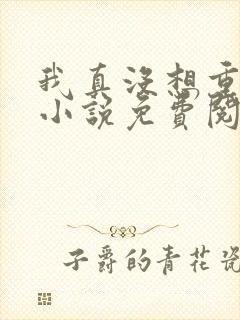 我真没想重
小説免費閱
子爵的青花瓷